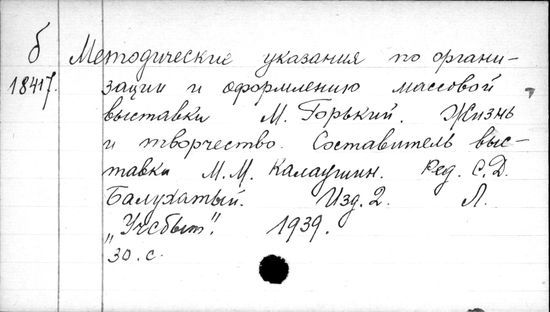 б Методические указания по органи-
18417. зации и оформлению массовой
выставки М. Горький. Жизнь
и творчество. Составитель выс-
тавки М.М. Калаушин. Ред. С.Д.
Балухатый. Изд. 2. Л.
„Учсбыт". 1939.
30. с.